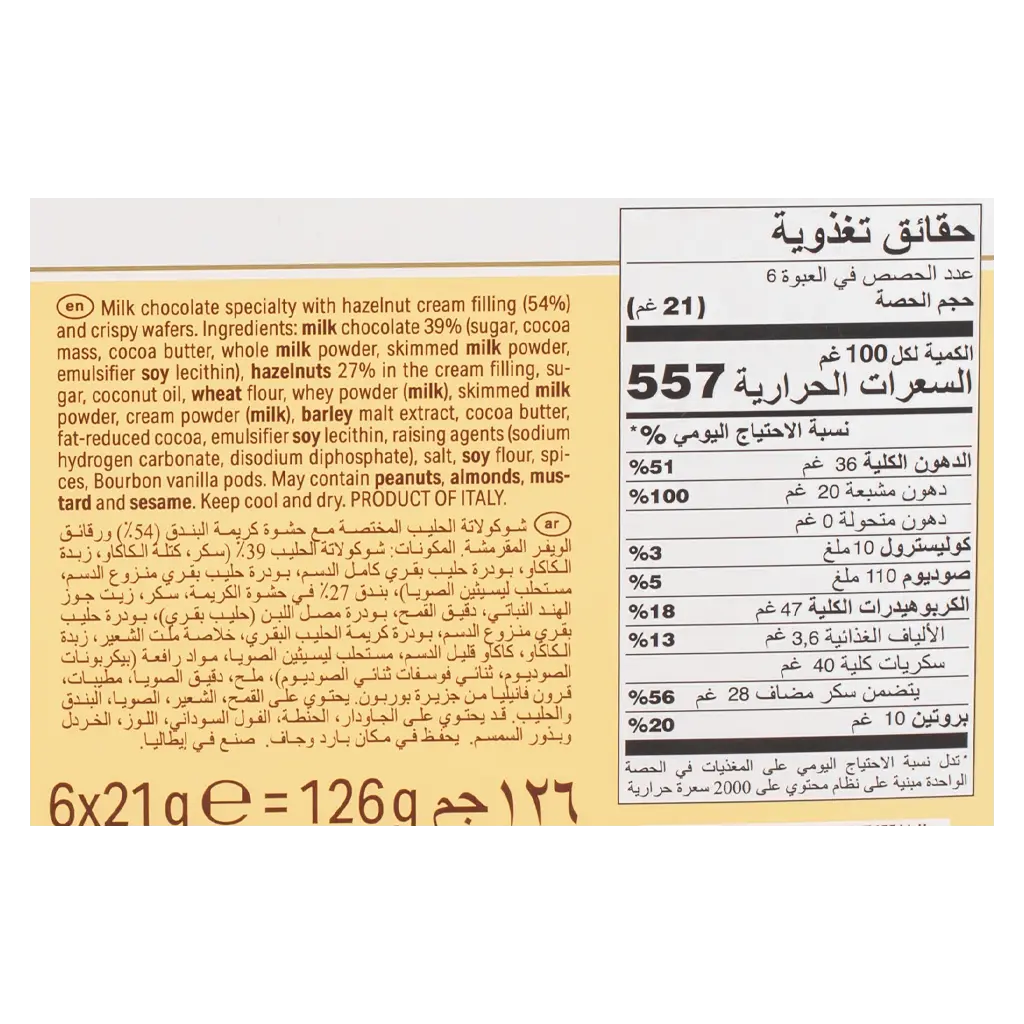 en Milk chocolate specialty with hazelnut cream filling (54%)
and crispy wafers. Ingredients: milk chocolate 39% (sugar, cocoa
mass, cocoa butter, whole milk powder, skimmed milk powder,
emulsifier soy lecithin), hazelnuts 27% in the cream filling, su-
gar, coconut oil, wheat flour, whey powder (milk), skimmed milk
powder, cream powder (milk), barley malt extract, cocoa butter,
fat-reduced cocoa, emulsifier soy lecithin, raising agents (sodium
hydrogen carbonate, disodium diphosphate), salt, soy flour, spi-
ces, Bourbon vanilla pods. May contain peanuts, almonds, mus-
tard and sesame. Keep cool and dry. PRODUCT OF ITALY.
ar شوكولاتة الحليب المختصة مع حشوة كريمة البندق (54٪) ورقائق
الويفر المقرمشة. المكونات: شوكولاتة الحليب 39٪ (سكر، كتلة الكاكاو، زبدة
الكاكاو، بودرة حليب بقري كامل الدسم، بودرة حليب بقري منزوع الدسم،
مستحلب ليسيثين الصويا)، بندق 27٪ في حشوة الكريمة، سكر، زيت جوز
الهند النباتي، دقيق القمح، بودرة مصل اللبن (حليب بقري)، بودرة حليب
بقري منزوع الدسم، بودرة كريمة الحليب البقري، خلاصة ملت الشعير، زبدة
الكاكاو، كاكاو قليل الدسم، مستحلب ليسيثين الصويا، مواد رافعة (بيكربونات
الصوديوم، ثنائي فوسفات ثنائي الصوديوم)، ملح، دقيق الصويا، مطيبات،
قرون فانيليا من جزيرة بوربون. يحتوي على القمح، الشعير، الصويا، البندق
والحليب. قد يحتوي على الجاودار، الحنطة، الفول السوداني، اللوز، الخردل
وبذور السمسم. يحفظ في مكان بارد وجاف. صنع في إيطاليا.
6x21g e = 126g ١٢٦ جم
حقائق تغذوية
عدد الحصص في العبوة 6
حجم الحصة (21 غم)
الكمية لكل 100 غم
السعرات الحرارية 557
نسبة الاحتياج اليومي %*
الدهون الكلية 36 غم 51%
دهون مشبعة 20 غم 100%
دهون متحولة 0 غم
كوليسترول 10 ملغ 3%
صوديوم 110 ملغ 5%
الكربوهيدرات الكلية 47 غم 18%
الألياف الغذائية 3,6 غم 13%
سكريات كلية 40 غم
يتضمن سكر مضاف 28 غم 56%
بروتين 10 غم 20%
*تدل نسبة الاحتياج اليومي على المغذيات في الحصة
الواحدة مبنية على نظام محتوي على 2000 سعرة حرارية